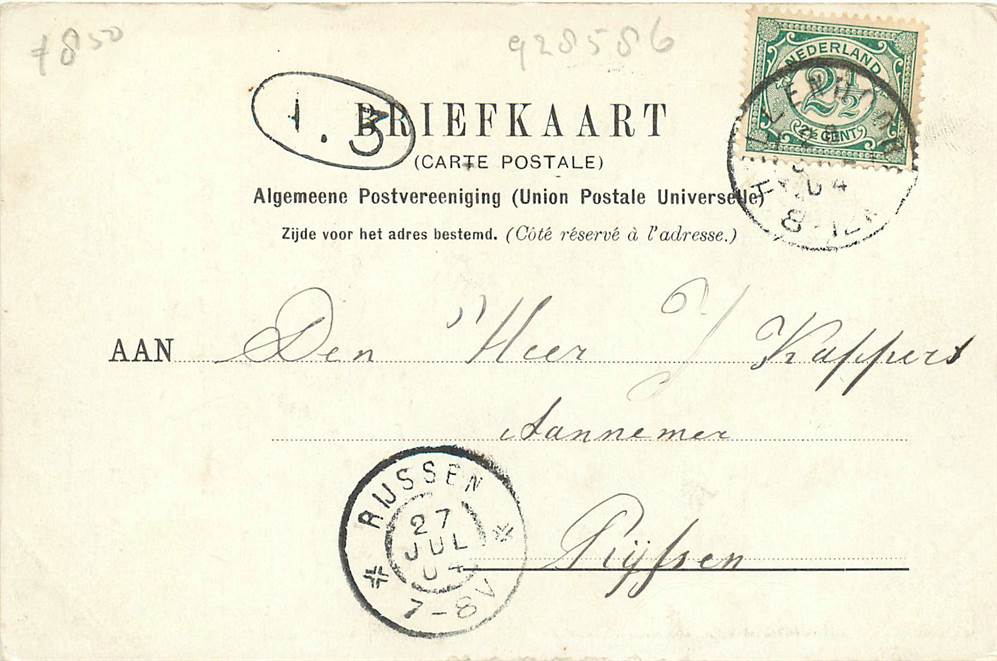 7850
928586
NEDERLAND
2½
2½ CENT
1.3
BRIEFKAART
(CARTE POSTALE)
Algemeene Postvereeniging (Union Postale Universelle)
Zijde voor het adres bestemd. (Côté réservé à l'adresse.)
04
8-12
AAN Den Heer J Kappers
Aannemer
Ryssen
RIJSSEN
27
JUL
04
7-8V